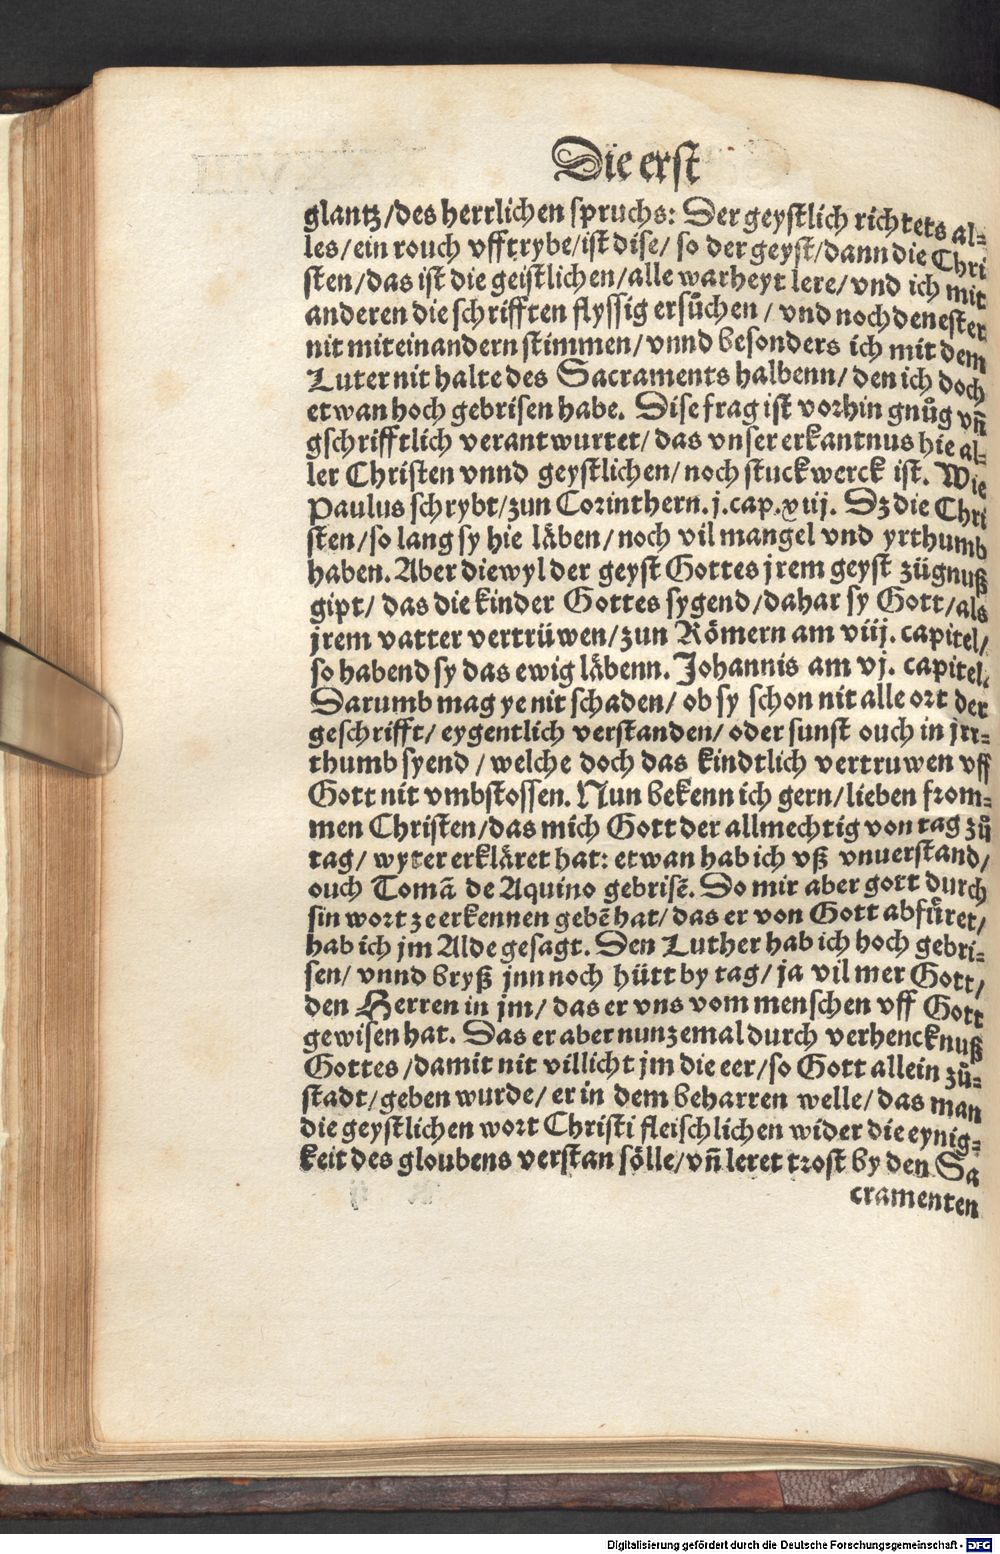 Die erst
glantz/des herrlichen spruchs: Der geystlich richtets al⸗
les/ein rouch vfftrybe/ist dise/ so der geyst/dann die Chri
sten/das ist die geistlichen/alle warheyt lere/vnd ich mit
anderen die schrifften flyssig ersuͦchen/ vnd noch denester
nit miteinandern stimmen/vnnd besonders ich mit dem
Luter nit halte des Sacraments halbenn/ den ich doch
etwan hoch gebrisen habe. Dise frag ist vorhin gnuͦg vñ
gschrifftlich verantwurtet/das vnser erkantnus hie al⸗
ler Christen vnnd geystlichen/noch stuckwerck ist. Wie
Paulus schrybt/zun Corinthern.j.cap.xiij. Dz die Chri
sten/so lang sy hie läben/noch vil mangel vnd yrthumb
haben. Aber diewyl der geyst Gottes jrem geyst zügnuß
gipt/ das die kinder Gottes sygend/dahar sy Gott/als
jrem vatter vertrüwen/zun Römern am viij. capitel/
so habend sy das ewig läbenn. Johannis am vj. capitel.
Darumb mag ye nit schaden/ ob sy schon nit alle ort der
geschrifft/ eygentlich verstanden/oder sunst ouch in jrr⸗
thumb syend/welche doch das kindtlich vertruwen vff
Gott nit vmbstossen. Nun bekenn ich gern/lieben from⸗
men Christen/das mich Gott der allmechtig von tag zuͦ
tag/ wyter erkläret hat: etwan hab ich vß vnuerstand/
ouch Tomã de Aquino gebrisẽ. Do mir aber gott durch
sin wort ze erkennen gebẽ hat/das er von Gott abfuͤret/
hab ich jm Alde gesagt. Den Luther hab ich hoch gebri⸗
sen/ vnnd bryß jnn noch hütt by tag/ ja vil mer Gott/
den Herren in jm/ das er vns vom menschen vff Gott
gewisen hat. Das er aber nunzemal durch verhencknuß
Gottes/damit nit villicht jm die eer/so Gott allein zuͦ⸗
stadt/geben wurde/ er in dem beharren welle/das man
die geystlichen wort Christi fleischlichen wider die eynig⸗
keit des gloubens verstan sölle/vñ leret trost by den Sa
cramenten
Digitalisierung gefördert durch die Deutsche Forschungsgemeinschaft - DFG